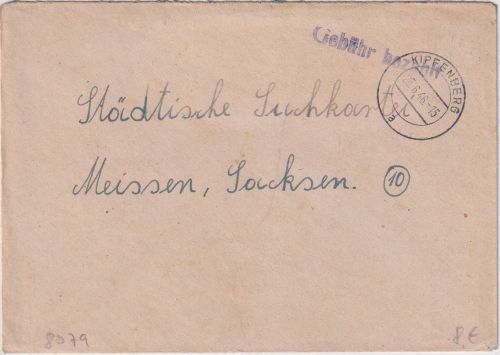 Gebühr bezahlt
KIPFENBERG
6.46.-15
a
Städtische Suchkartei
Meissen, Sachsen. 10
8079 8€